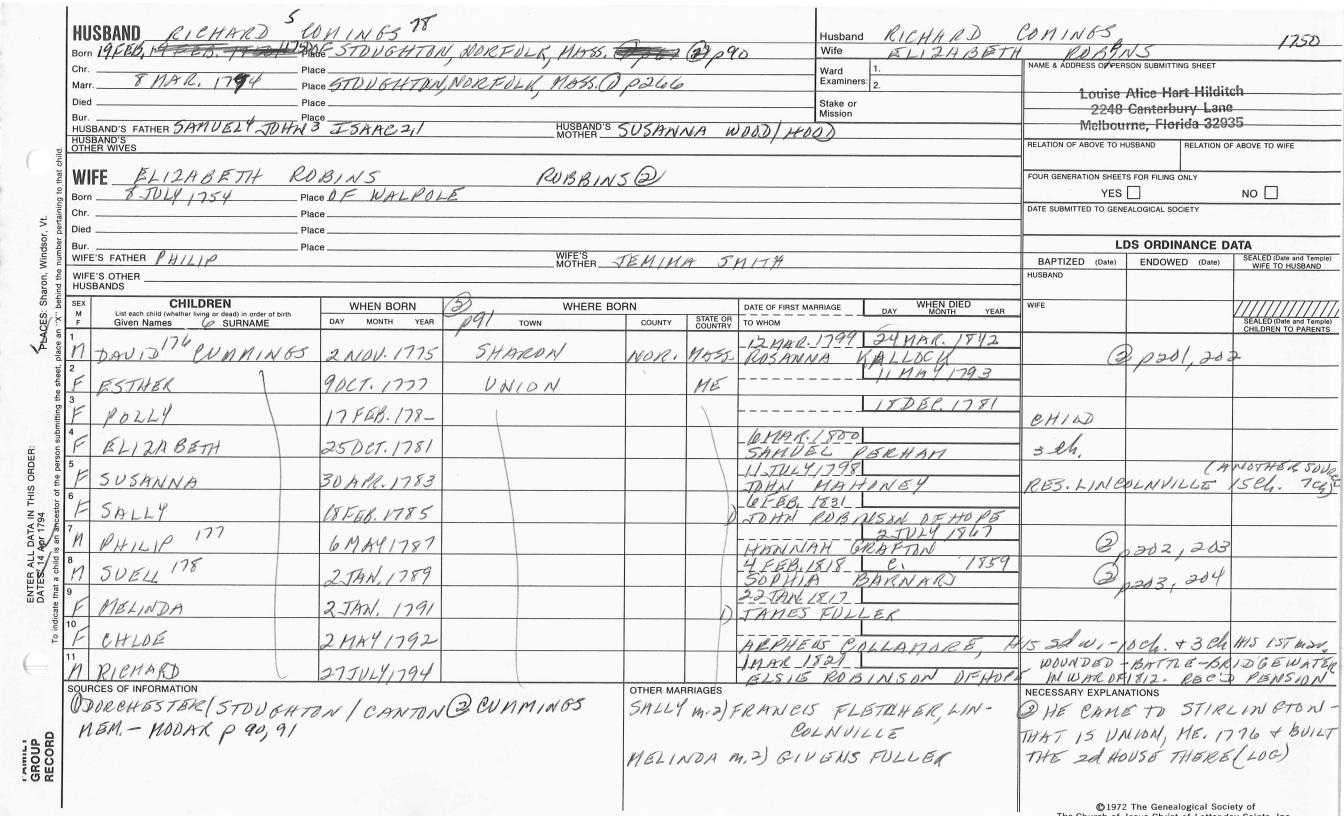 HUSBAND RICHARD 5 COMINGS 78
Born 19 FEB. Place OF STOUGHTON, NORFOLK, MASS. ② p90
Chr. Place
Marr. 8 MAR. 1794 Place STOUGHTON, NORFOLK, MASS. ① p266
Died Place
Bur. Place
HUSBAND'S FATHER SAMUEL4 JOHN3 ISAAC2,1 HUSBAND'S MOTHER SUSANNA WOOD/HOOD
HUSBAND'S OTHER WIVES
Husband RICHARD COMINGS 1750
Wife ELIZABETH ROBINS
Ward Examiners: 1.
2.
Stake or Mission
NAME & ADDRESS OF PERSON SUBMITTING SHEET
Louise Alice Hart Hilditch
2248 Canterbury Lane
Melbourne, Florida 32935
RELATION OF ABOVE TO HUSBAND RELATION OF ABOVE TO WIFE
FOUR GENERATION SHEETS FOR FILING ONLY
YES NO
DATE SUBMITTED TO GENEALOGICAL SOCIETY
WIFE ELIZABETH ROBINS ROBBINS ②
Born 8 JULY 1754 Place OF WALPOLE
Chr. Place
Died Place
Bur. Place
WIFE'S FATHER PHILIP WIFE'S MOTHER JEMIMA SMITH
WIFE'S OTHER HUSBANDS
LDS ORDINANCE DATA
BAPTIZED (Date) ENDOWED (Date) SEALED (Date and Temple) WIFE TO HUSBAND
HUSBAND
WIFE
SEALED (Date and Temple) CHILDREN TO PARENTS
SEX M F CHILDREN WHEN BORN ② p91 WHERE BORN DATE OF FIRST MARRIAGE WHEN DIED
List each child (whether living or dead) in order of birth
Given Names 6 SURNAME DAY MONTH YEAR TOWN COUNTY STATE OR COUNTRY TO WHOM DAY MONTH YEAR
1 12 MAR. 1799 24 MAR. 1842
M DAVID 176 CUMMINGS 2 NOV. 1775 SHARON NOR. MASS. ROSANNA KALLOCK ② p201, 202
2 11 MAY 1793
F ESTHER 9 OCT. 1777 UNION ME
3 18 DEC. 1781
F POLLY 17 FEB. 178- CHILD
4 6 MAR. 1800
F ELIZABETH 25 OCT. 1781 SAMUEL PERHAM 3 ch.
5 11 JULY 1798 (ANOTHER SOURCE
F SUSANNA 30 APR. 1783 JOHN MAHONEY RES. LINCOLNVILLE 15 ch. 7ch)
6 6 FEB. 1831
F SALLY 18 FEB. 1785 1) JOHN ROBINSON OF HOPE
7 2 JULY 1867
M PHILIP 177 6 MAY 1787 HANNAH GRAFTON ② p202, 203
8 4 FEB. 1818 c. 1859
M SUELL 178 2 JAN. 1789 SOPHIA BARNARD ② p203, 204
9 22 JAN. 1817
F MELINDA 2 JAN. 1791 1) JAMES FULLER
10
F CHLOE 2 MAY 1792 ARPHENS COLLAMORE, HIS 2d w. - 10 ch. & 3 ch HIS 1ST
11 1 MAR 1821 WOUNDED - BATTLE - BRIDGEWATER
M RICHARD 27 JULY 1794 ELSIE ROBINSON OF HOPE IN WAR OF 1812. REC'D PENSION
SOURCES OF INFORMATION
① DORCHESTER/STOUGHTON/CANTON ② CUMMINGS
MEM. - MODAR p 90, 91
OTHER MARRIAGES
SALLY m. 2) FRANCIS FLETCHER, LIN-
COLNVILLE
MELINDA m. 2) GIVENS FULLER
NECESSARY EXPLANATIONS
② HE CAME TO STIRLINGTON -
THAT IS UNION, ME. 1776 & BUILT
THE 2d HOUSE THERE (LOG)
©1972 The Genealogical Society of
The Church of Jesus Christ of Latter-day Saints, Inc.
FAMILY GROUP RECORD
ENTER ALL DATA IN THIS ORDER:
DATES: 14 Apr 1794
PLACES: Sharon, Windsor, Vt.
To indicate that a child is an ancestor of the person submitting the sheet, place an "X" behind the number pertaining to that child.